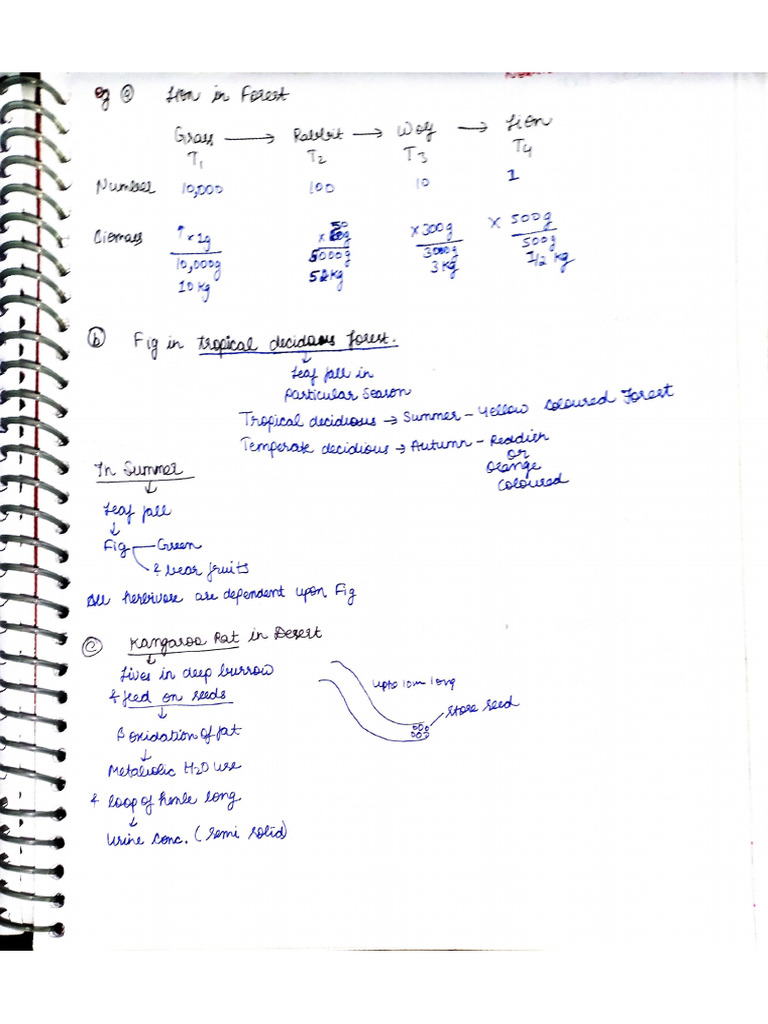 eg (a) Lion in Forest
Grass → Rabbit → Wolf → Lion
T1 T2 T3 T4
Number 10,000 100 10 1
Biomass ↑ × 1g × 50g × 300g × 500g
10,000g 5000g 3000g 500g
10 Kg 5 kg 3 kg 1/2 kg
(b) Fig in tropical deciduous forest.
↓
Leaf fall in
Particular Season
Tropical decidious → Summer - Yellow Coloured Forest
Temperate decidious → Autumn - Reddish
or
Orange
Coloured
In Summer
↓
Leaf fall
↓
Fig Green
& bear fruits
All herervose are dependent upon Fig
(c) Kangaroo Rat in Desert
↓
Lives in deep burrow
& feed on seeds
upto 10m long
store seed
↓
β oxidation of fat
↓
Metabolic H2O use
& loop of henle long
↓
Urine conc. (semi solid)